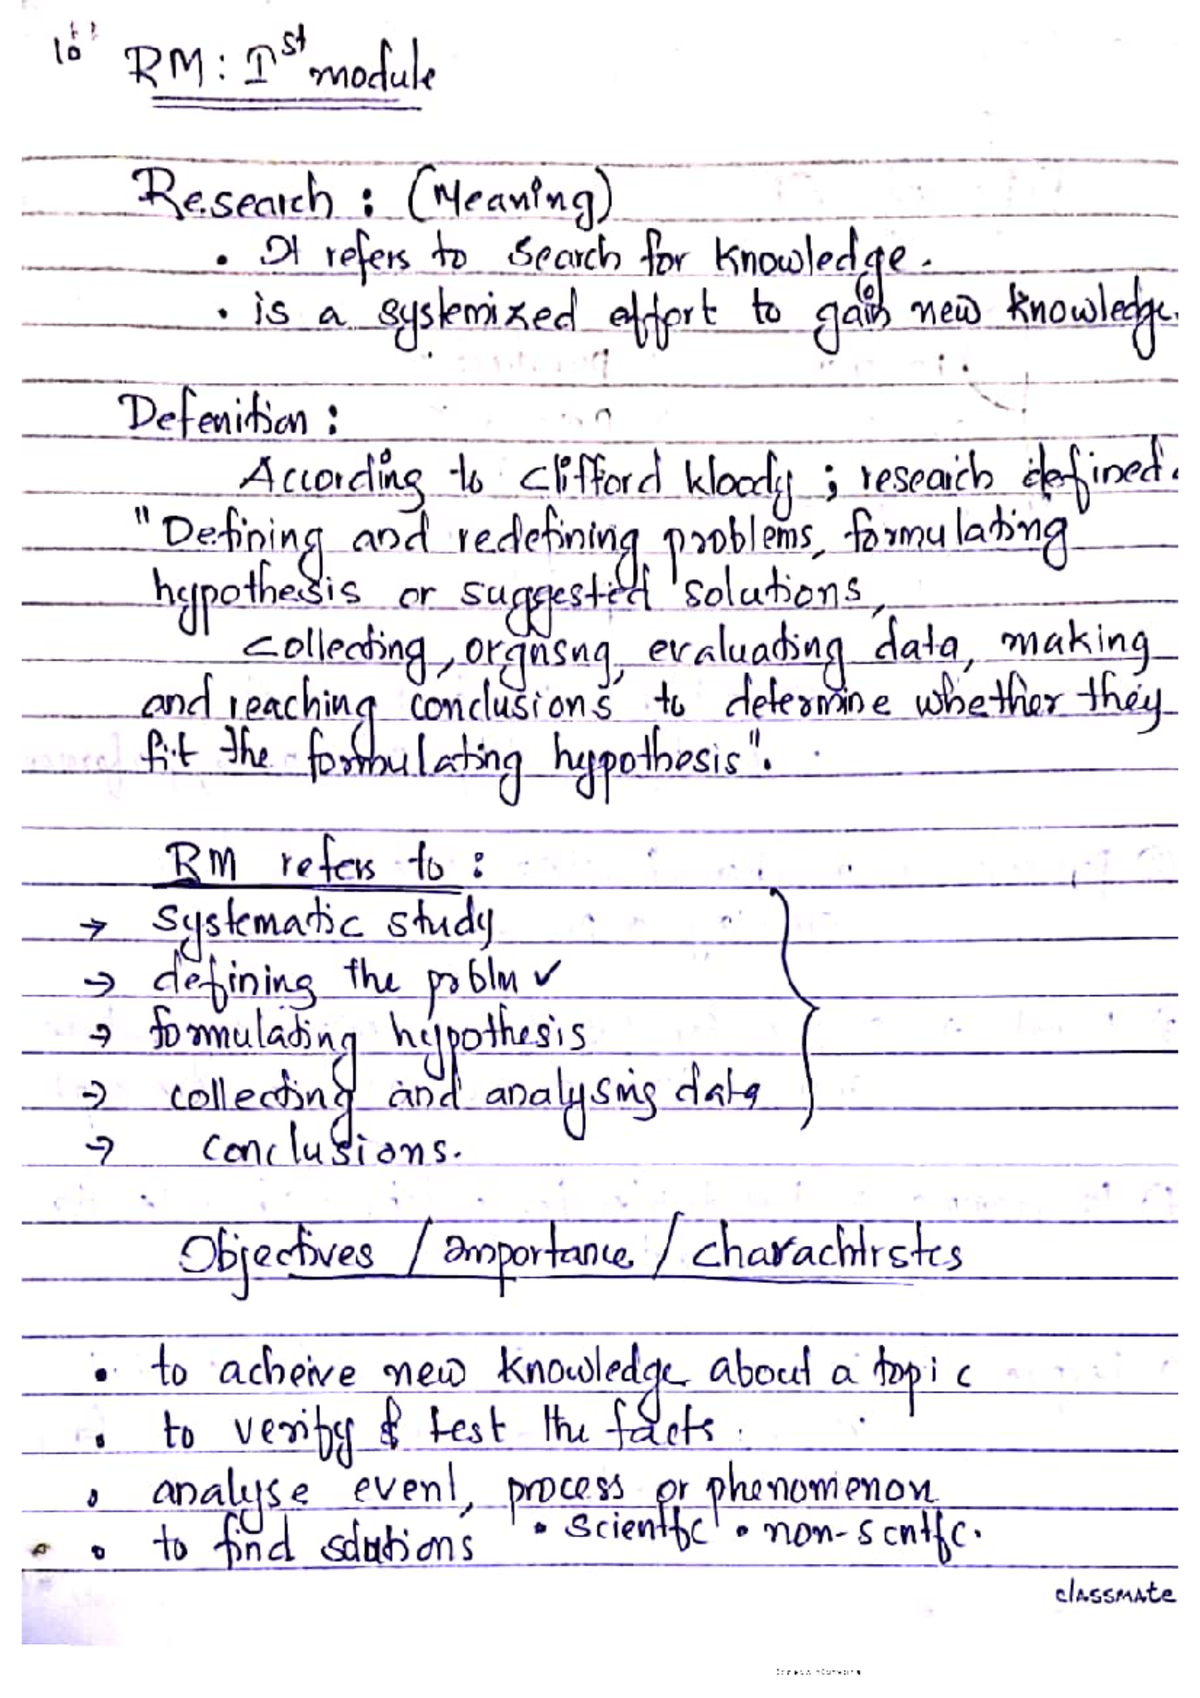 RM: Ist module
Research : (Meaning)
• It refers to search for knowledge.
• is a systemized effort to gain new knowledge.
Defenition :
According to clifford kloody ; research defined.
"Defining and redefining problems, formulating
hypothesis or suggested solutions,
collecting, orgnsng, evaluating data, making
and reaching conclusions to determine whether they
fit the formulating hypothesis".
RM refers to :
→ systematic study
→ defining the poblm ✓
→ formulating hypothesis
→ collecting and analysing data
→ conclusions.
Objectives / importance / charachtrstcs
• to acheive new knowledge about a topic
• to verify & test the facts.
• analyse event, process or phenomenon
• to find solutions • scientfc • non-scntfc.
classmate